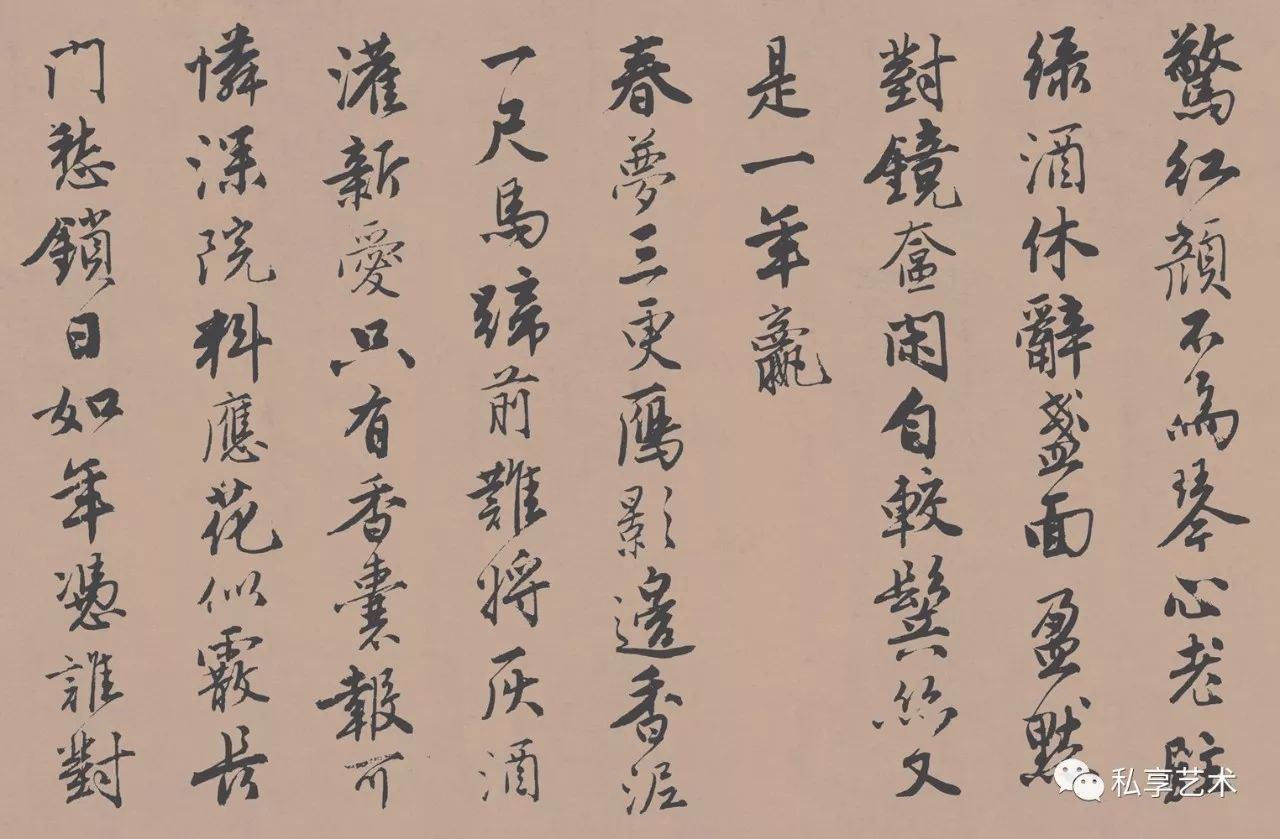 驚紅顏不為琴心老駐
綠酒休辭盞面盈默
對鏡奩閑自較鬢絲又
是一年贏
春夢三更鴈影邊香泥
一尺馬蹄前難將灰酒
灌新愛只有香囊報可
憐深院料應花似霰長
門愁鎖日如年憑誰對
私享艺术